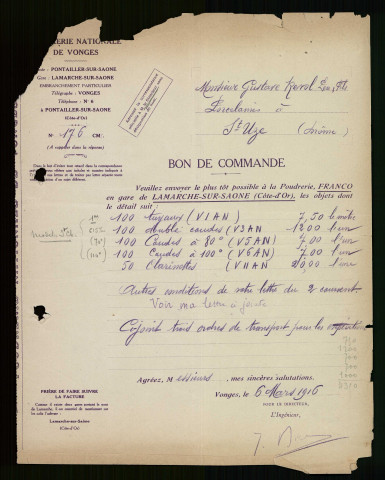 ERIE NATIONALE
DE VONGES
Poste : PONTAILLER-SUR-SAONE
Gare : LAMARCHE-SUR-SAONE
EMBRANCHEMENT PARTICULIER
Télégraphe : VONGES
Téléphone : N° 6
à PONTAILLER-SUR-SAONE
(Côte-d'Or)
N° 176 CM
(A rappeler dans la réponse)
Monsieur Gustave Revol Père & Fils
Porcelaines à
St Uze (Drôme)
BON DE COMMANDE
Veuillez envoyer le plus tôt possible à la Poudrerie, FRANCO
en gare de LAMARCHE-SUR-SAONE (Côte-d'Or), les objets dont
le détail suit :
100 tuyaux (V1AN) 7,50 le mètre
100 double coudes (V3AN 12,00 l'un
100 Coudes à 80° (V5AN) 7,00 l'un
100 Coudes à 100° (V6AN) 7,00 l'un
50 Clarinettes (V11AN 20,00 l'un
Autres conditions de votre lettre du 2 courant
Voir ma lettre à
Cijoint trois ordres de transport pour les expéditions
Agréez, Messieurs, mes sincères salutations.
Vonges, le 6 Mars 1916
POUR LE DIRECTEUR,
L'Ingénieur,
PRIÈRE DE FAIRE SUIVRE
LA FACTURE
Lamarche-sur-Saône
(Côte-d'Or)